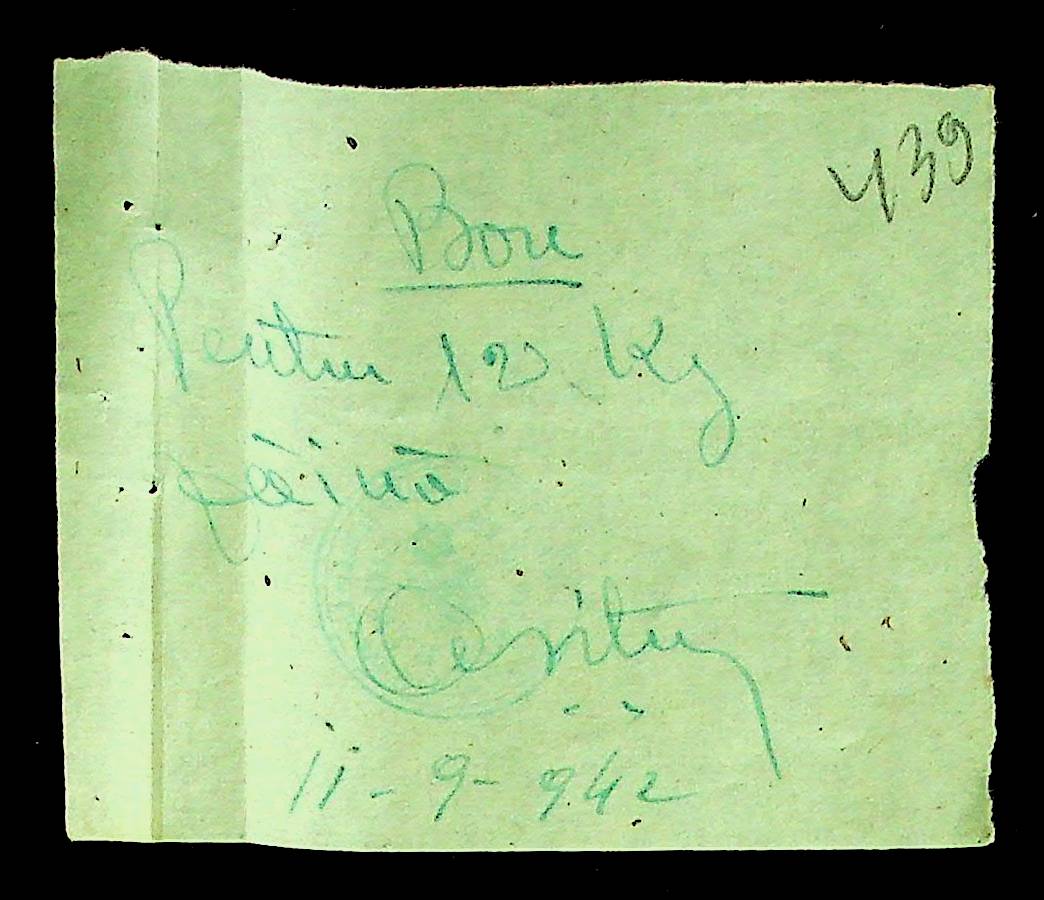 439
Bon
Pentru 12 Kg
pâină
11-9-942